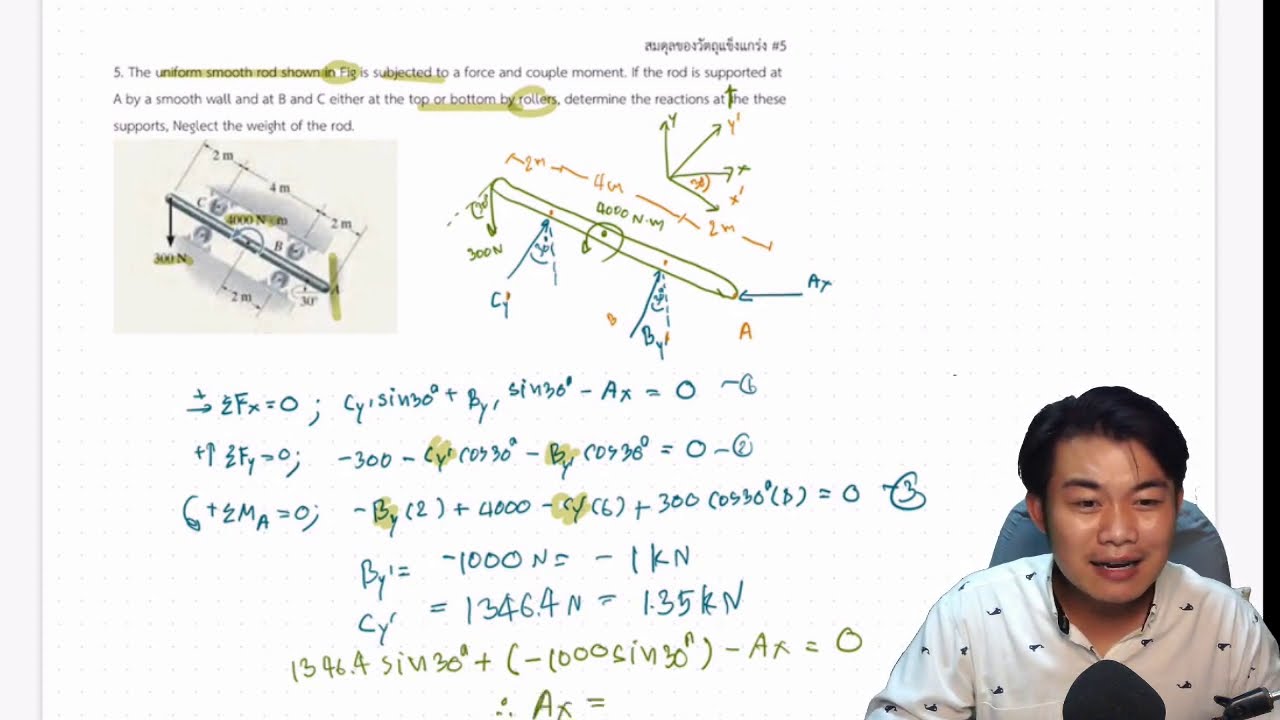 สมดุลของวัตถุแข็งเกร็ง #5
5. The uniform smooth rod shown in Fig is subjected to a force and couple moment. If the rod is supported at
A by a smooth wall and at B and C either at the top or bottom by rollers, determine the reactions at the these
supports, Neglect the weight of the rod.
2 m
4 m
2 m
C
4000 N · m
B
300 N
A
2 m
30°
y
y'
x
30°
x'
2m
4m
2m
4000 N·m
30°
300N
30°
Cy'
30°
B
By'
Ax
A
+→ ΣFx=0 ; Cy' sin30° + By' sin30° - Ax = 0 -①
+↑ ΣFy=0; -300 - Cy' cos30° - By' cos30° = 0 -②
+ΣMA=0; -By'(2) + 4000 - Cy'(6) + 300 cos30°(8) = 0 -③
By' = -1000 N = - 1 kN
Cy' = 1346.4 N = 1.35 kN
1346.4 sin30° + (-1000sin30°) - Ax = 0
∴ Ax =